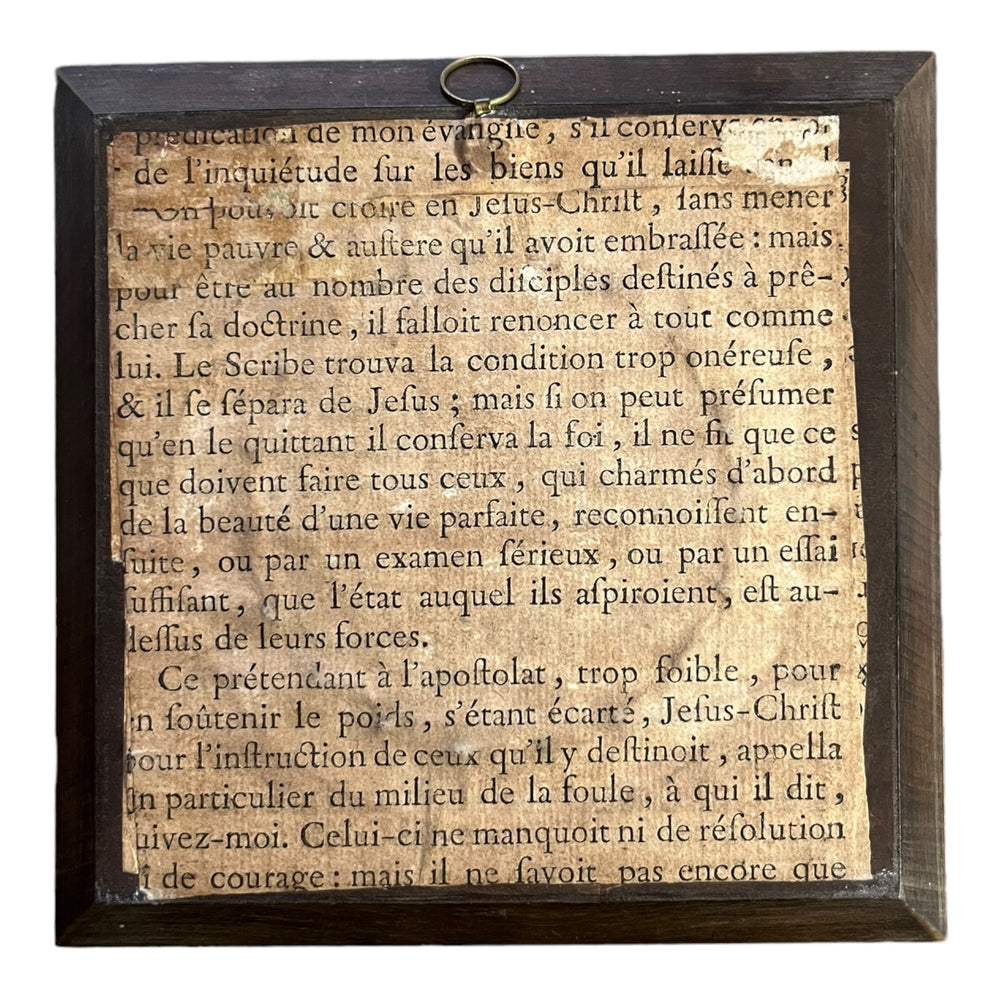 prédication de mon évangile, s'il conſerve encor
de l'inquiétude ſur les biens qu'il laiſſe
pouvoit croire en Jeſus-Chriſt, ſans mener
la vie pauvre & auſtere qu'il avoit embraſſée : mais
pour être au nombre des diſciples deſtinés à prê-
cher ſa doctrine, il falloit renoncer à tout comme
lui. Le Scribe trouva la condition trop onéreuſe,
& il ſe ſépara de Jeſus ; mais ſi on peut préſumer
qu'en le quittant il conſerva la foi, il ne fit que ce
que doivent faire tous ceux, qui charmés d'abord
de la beauté d'une vie parfaite, reconnoiſſent en-
ſuite, ou par un examen ſérieux, ou par un eſſai
ſuffiſant, que l'état auquel ils aſpiroient, eſt au-
deſſus de leurs forces.
Ce prétendant à l'apoſtolat, trop foible, pour
en ſoûtenir le poids, s'étant écarté, Jeſus-Chriſt
pour l'inſtruction de ceux qu'il y deſtinoit, appella
un particulier du milieu de la foule, à qui il dit,
ſuivez-moi. Celui-ci ne manquoit ni de réſolution
ni de courage : mais il ne ſavoit pas encore que